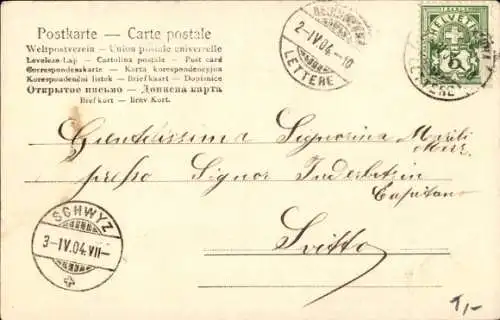 Postkarte — Carte postale
Weltpostverein - Union postale universelle
Levelező-Lap - Cartolina postale - Post card
Correspondenzkarte - Karta korrespondencyjna
Korespondenční lístek - Briefkaart - Dopisnice
Открытое письмо - Дописна карта
Brefkort - Brev Kort.
2-IV.04.-10
LETTERE
HELVETIA
5
Gentilissima Signorina
presso Signor Inderbitzin
Capitano
Svitto
SCHWYZ
3-IV.04.VII-
1,-